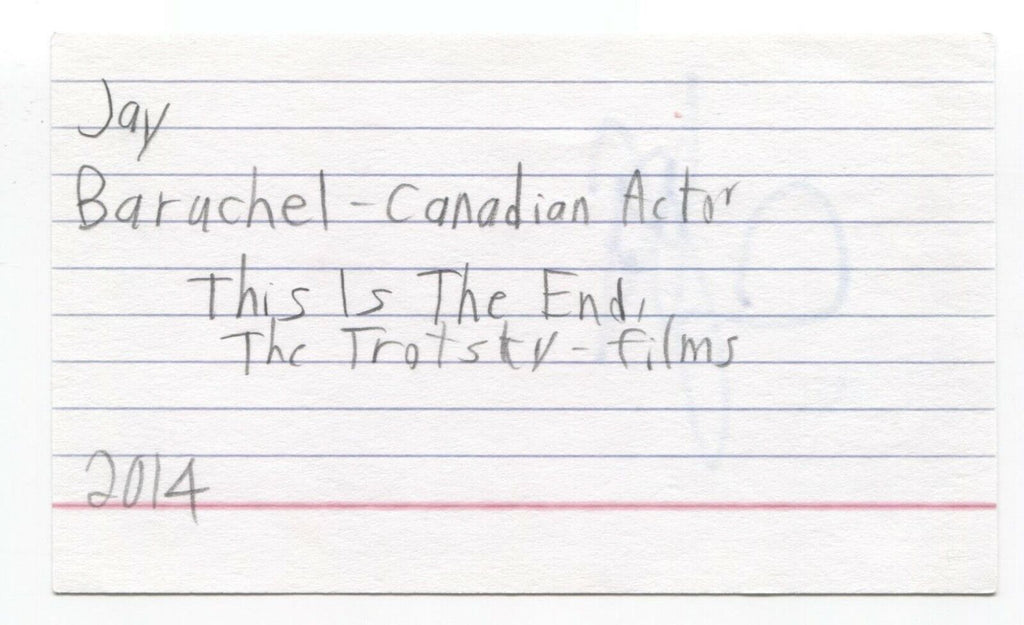 Jay
Baruchel - Canadian Actor
This Is The End,
The Trotsky - films
2014